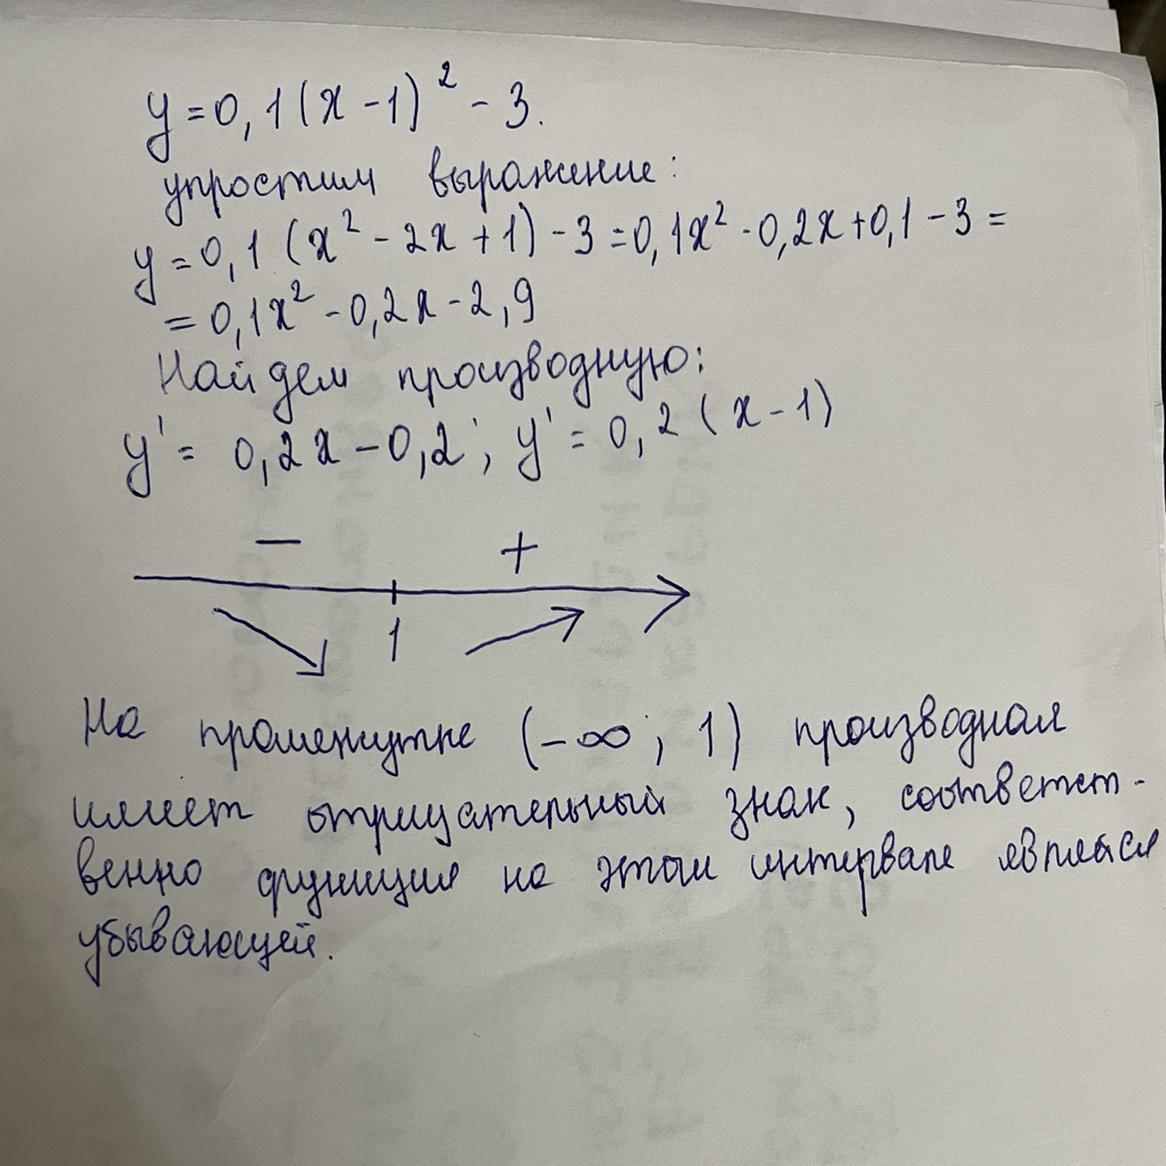 y=0,1(x-1)² - 3.
упростим выражение:
y=0,1(x²-2x+1)-3=0,1x²-0,2x+0,1-3=
=0,1x²-0,2x-2,9
Найдем производную:
y'=0,2x-0,2; y'=0,2(x-1)
− +
1
На промежутке (-∞; 1) производная
имеет отрицательный знак, соответст-
венно функция на этом интервале являйся
убывающей.